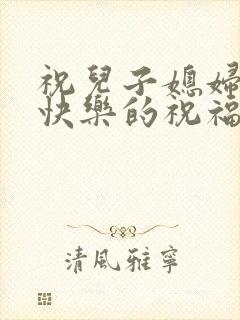 祝兒子媳婦
快樂的祝福
清風雅寧